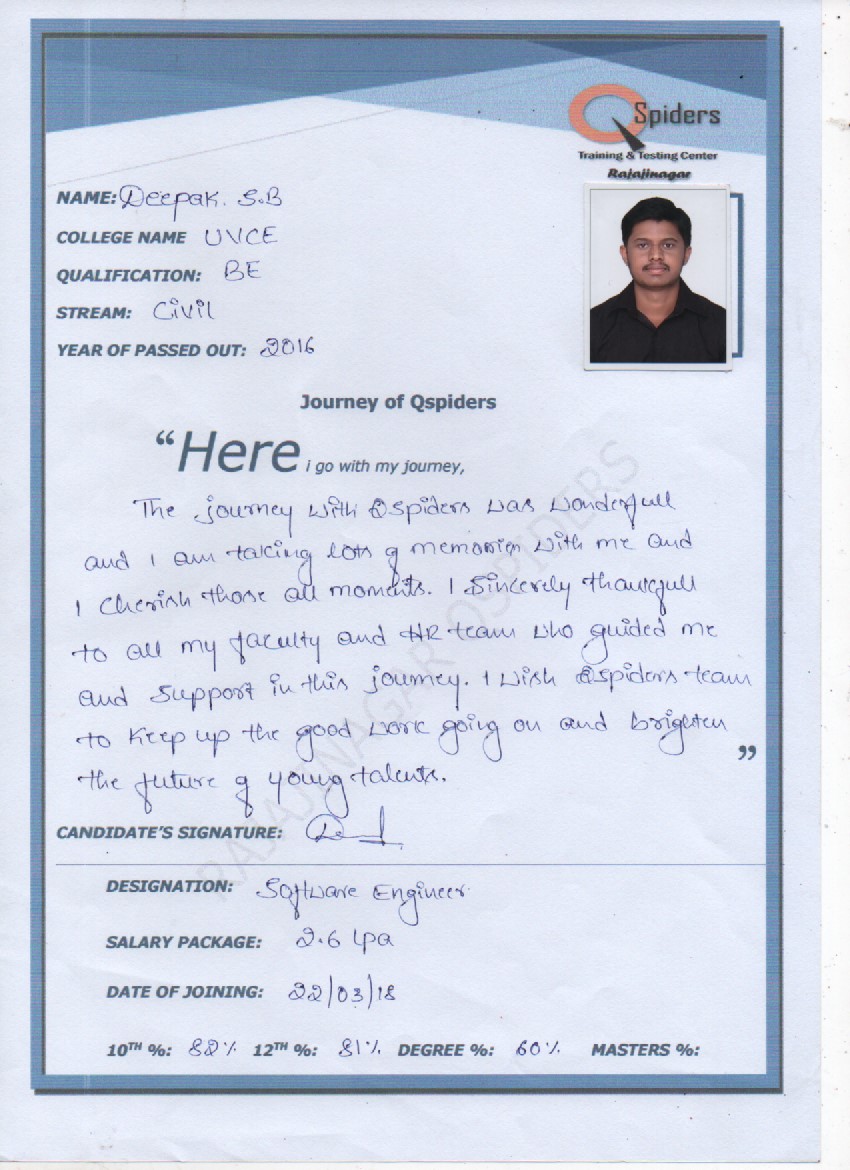 QSpiders
Training & Testing Center
Rajajinagar
NAME: Deepak. S.B
COLLEGE NAME UVCE
QUALIFICATION: BE
STREAM: Civil
YEAR OF PASSED OUT: 2016
Journey of Qspiders
“Here i go with my journey,
The journey with Qspiders was wonderfull
and I am taking lots of memories with me and
I cherish those all moments. I Sincerely thankfull
to all my faculty and HR team who guided me
and Support in this journey. I wish Qspiders team
to keep up the good work going on and brighten
the future of young talents. ”
CANDIDATE'S SIGNATURE:
DESIGNATION: Software Engineer
SALARY PACKAGE: 2.6 Lpa
DATE OF JOINING: 22/03/18
10TH %: 88% 12TH %: 81% DEGREE %: 60% MASTERS %:
RAJAJINAGAR QSPIDERS